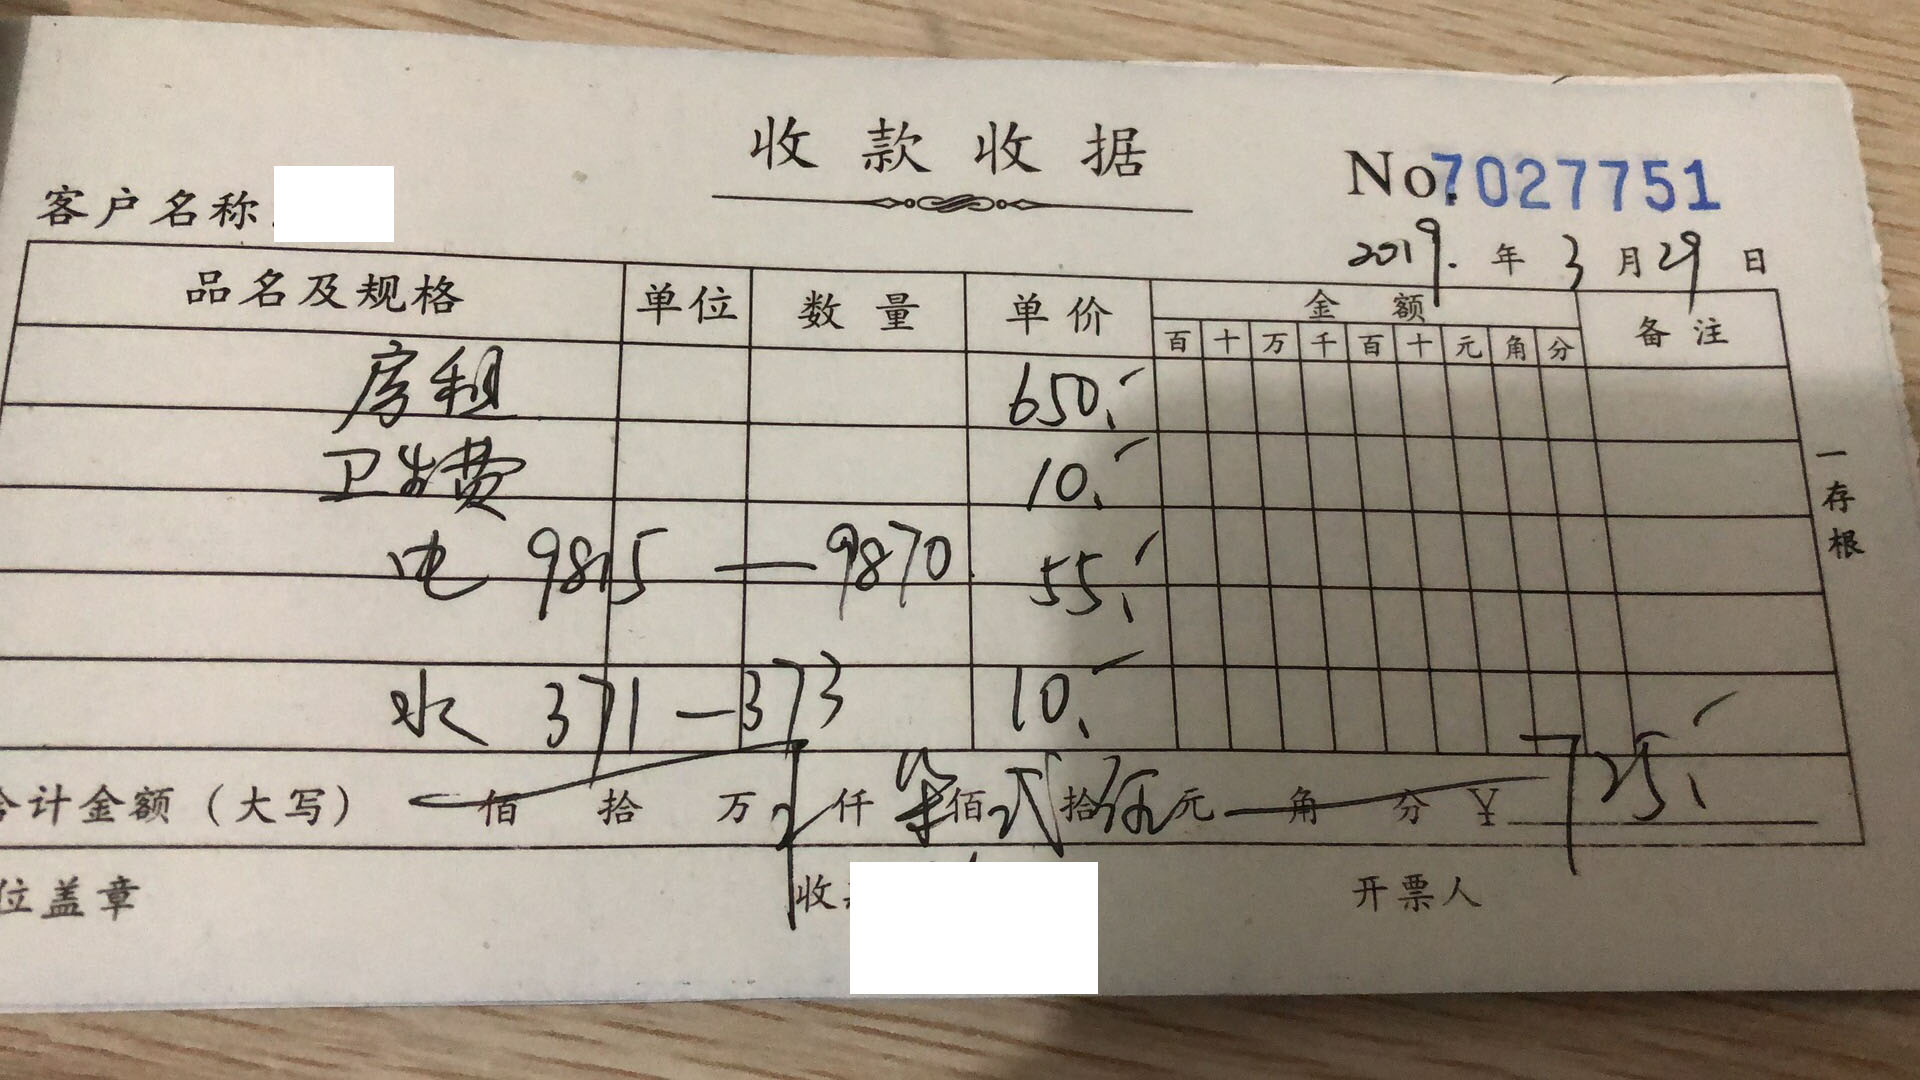 收款收据
No.7027751
客户名称
2019.年3月29日
品名及规格 单位 数量 单价 金额 备注
百 十 万 千 百 十 元 角 分
房租 650.
卫生费 10.
电 9815—9870 55.
水 371—373 10.
合计金额（大写） 佰 拾 万 仟 柒佰 贰拾 伍元 角 分 ￥725.
位盖章 收 开票人
一存根